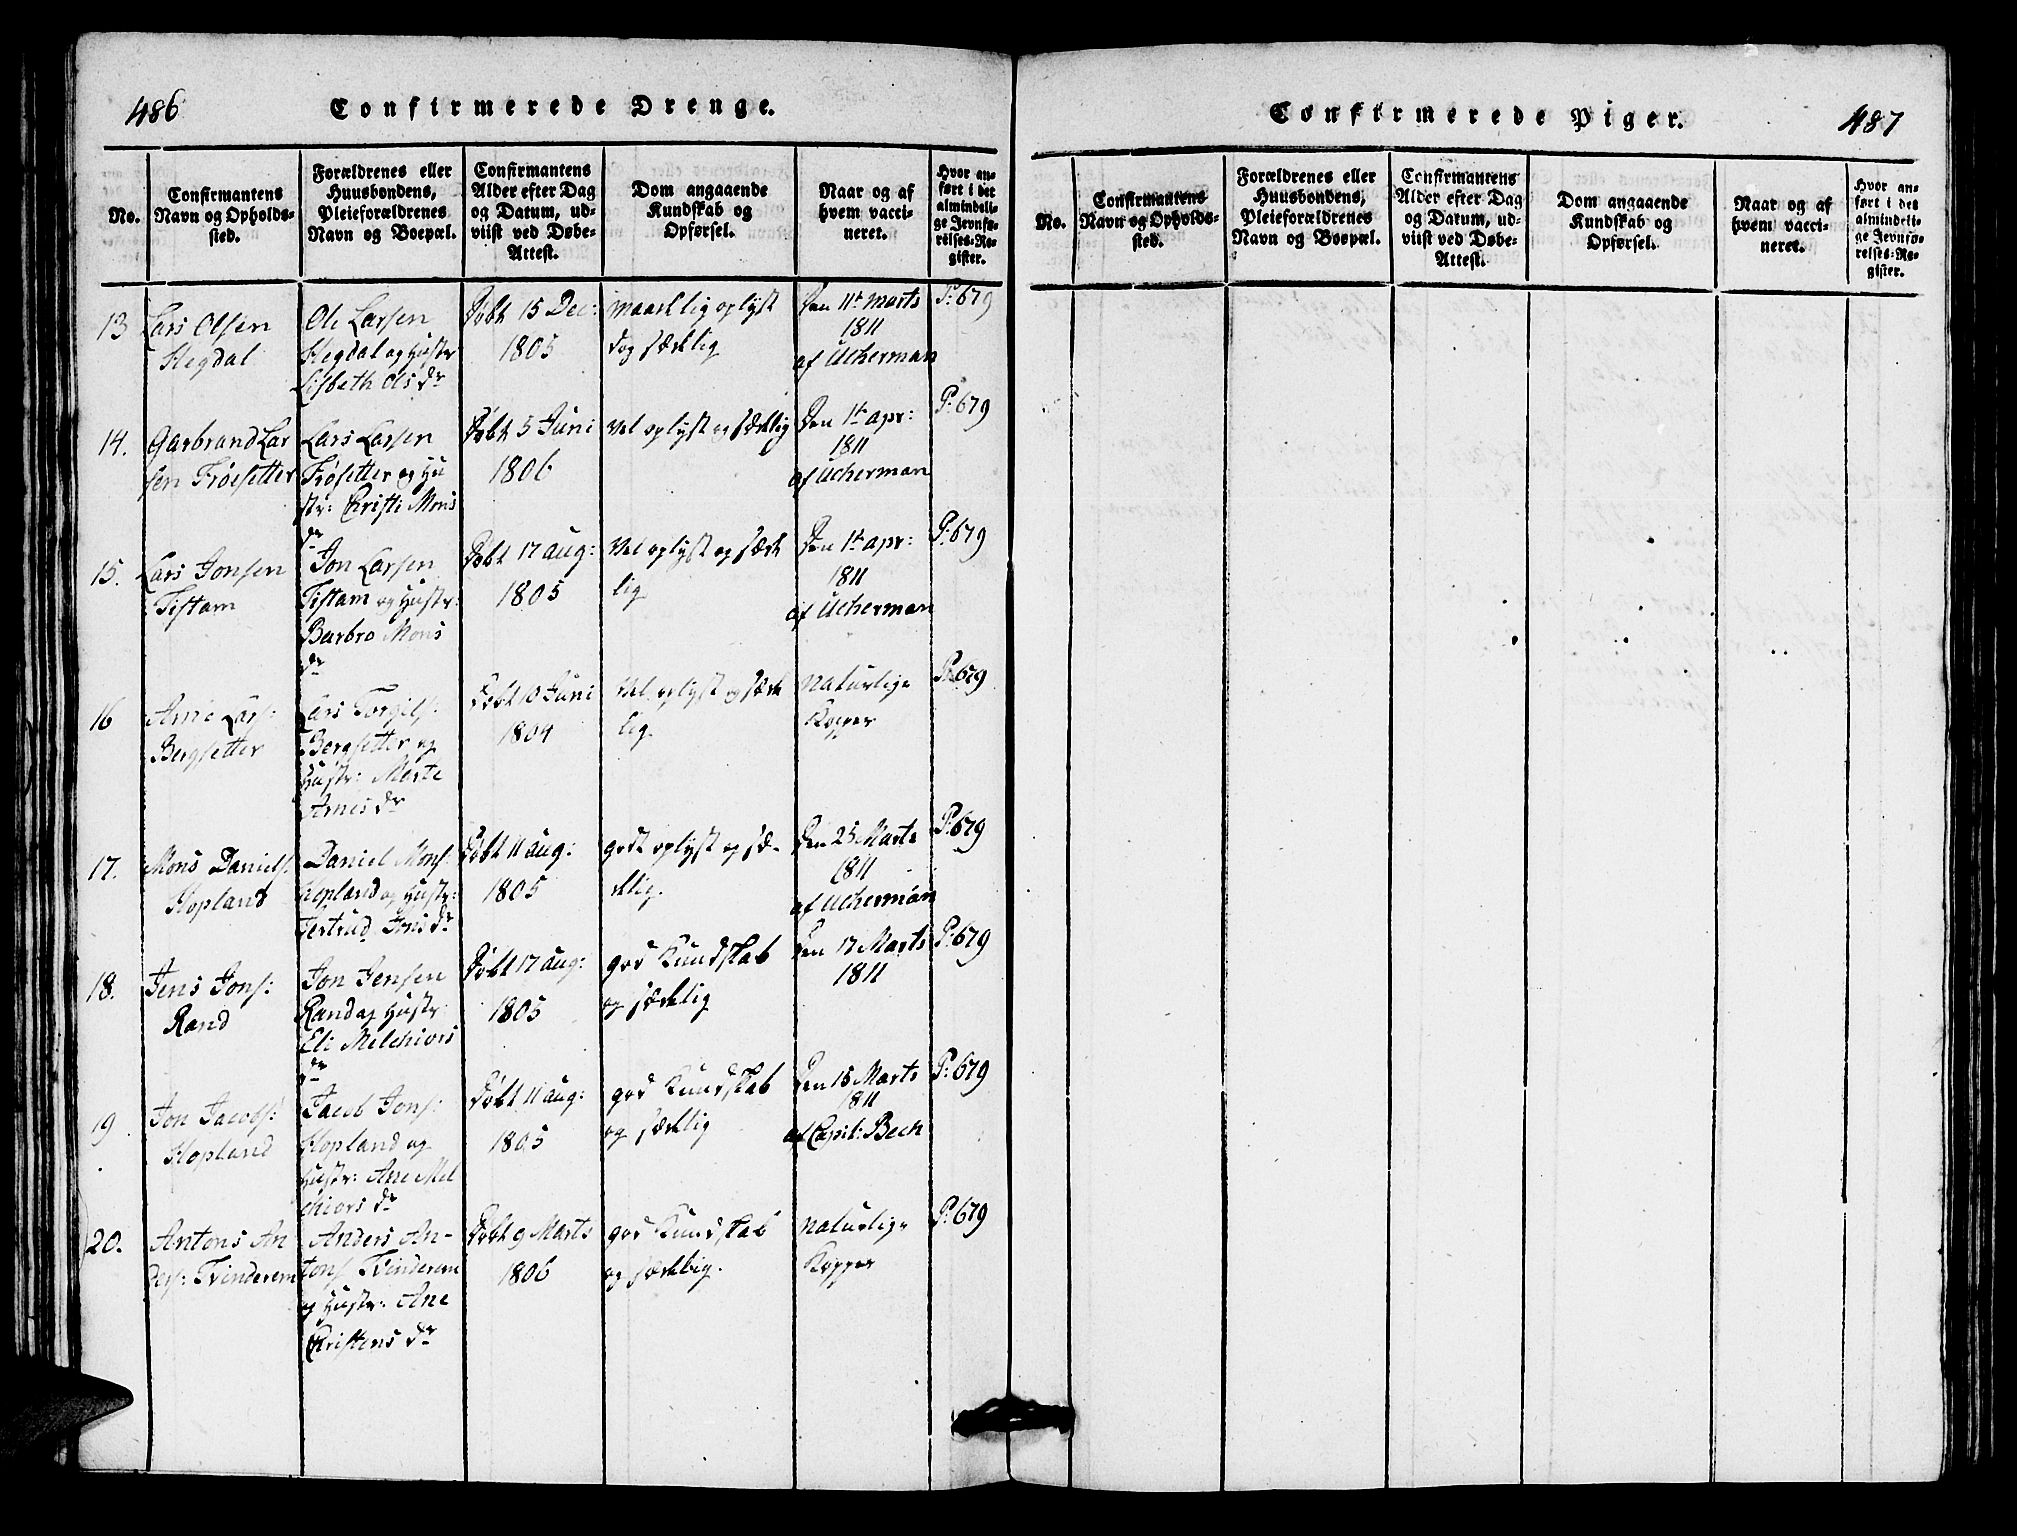 486
Confirmerede Drenge.
No.
Confirmantens
Navn og Opholds-
sted.
Forældrenes eller
Huusbondens,
Pleieforældrenes
Navn og Boepæl.
Confirmantens
Alder efter Dag
og Datum, ud-
viist ved Døbe-
Attest.
Dom angaaende
Kundskab og
Opførsel.
Naar og af
hvem vacci-
neret.
Hvor an-
ført i det
almindeli-
ge Jevnfø-
relses-Re-
gister.
13
Lars Olsen
Hegdal
Ole Larsen
Hegdal og Hustr
Lisbeth Ols dr
Døbt 15 Dec:
1805
maadelig oplyst
dog sædelig
Den 11te marts
1811
af Ucherman
P: 679
14.
Garbrand Lar
sen Frøesetter
Lars Larsen
Frøsetter og Hu
str: Christi Mons
dr
Døbt 5 Juni
1806
Vel oplyst og sædelig
Den 1te apr:
1811
af Ucherman
P: 679
15.
Lars Jonsen
Tistam
Jon Larsen
Tistam og Hustr:
Barbro Mons
dr
Døbt 17 aug:
1805
Vel oplyst og sæde
lig
Den 1te apr:
1811
af Ucherman
P: 679
16
Arne Lars:
Bergsetter
Lars Torgils:
Bergsetter og
Hustr: Marte
Arnes dr
Døbt 10 Juni
1804
Vel oplyst og sæde
lig.
Naturlige
Kopper
P: 679
17.
Mons Daniels:
Hopland
Daniel Mons:
Hopland og Hustr:
Gertrud Jons dr
Døbt 11 aug:
1805
godt oplyst og sæ-
delig.
Den 25 Marts
1811
af Ucherman
P: 679
18.
Jens Jons:
Rand
Jon Jensen
Rand og Hustr
Eli Melchiors
dr
Døbt 17 aug:
1805
god Kundskab
og sædelig
Den 17 Marts
1811
P: 679
19.
Jon Jacobs:
Hopland
Jacob Jons:
Hopland og
Hustr: Ane Mel
chiors dr
Døbt 11 aug:
1805
god Kundskab
og sædelig
Den 15 Marts
1811
af Capit: Bech
P: 679
20.
Antons An
ders: Tvinderem
Anders An-
tons Tvinderem
og Hustr: Ane
Christens dr
Døbt 9 Marts
1806
god Kundskab
og sædelig.
Naturlige
Kopper
P: 679
Confirmerede Piger.
487
No.
Confirmantens
Navn og Opholds-
sted.
Forældrenes eller
Huusbondens,
Pleieforældrenes
Navn og Boepæl.
Confirmantens
Alder efter Dag
og Datum, ud-
viist ved Døbe-
Attest.
Dom angaaende
Kundskab og
Opførsel.
Naar og af
hvem vacci-
neret.
Hvor an-
ført i det
almindeli-
ge Jevnfø-
relses-Re-
gister.